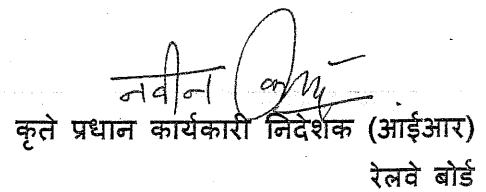 नवीन कुमार
कृते प्रधान कार्यकारी निदेशक (आईआर)
रेलवे बोर्ड